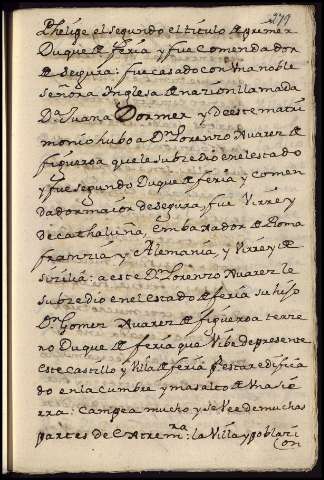 279
Phelipe el segundo el titulo de primer
Duque de feria y fue Comendador
de Segura: fue casado con Vna noble
señora Inglesa de nazion llamada
Da. Juana Dormer y de este matri
monio hubo a Dn. Lorenzo Xuarez de
figueroa que le subzedio en el estado
y fue segundo Duque de feria y comen
dador maior de segura, fue Virrey
de Cathaluna, embaxador de Roma
franzia y Alemania, y Virrey de
Sizilia: a este Dn. Lorenzo Xuarez le
subzedio en el estado de feria su hijo
Dn. Gomez Xuarez de figueroa terze
ro Duque de feria que Vibe de presente
este Castillo y Villa de feria esta edifica
do en la cumbre y mas alto de Vna sie
rra: campea mucho y se Vee de muchas
partes de Extremra. la Villa y poblazi
on